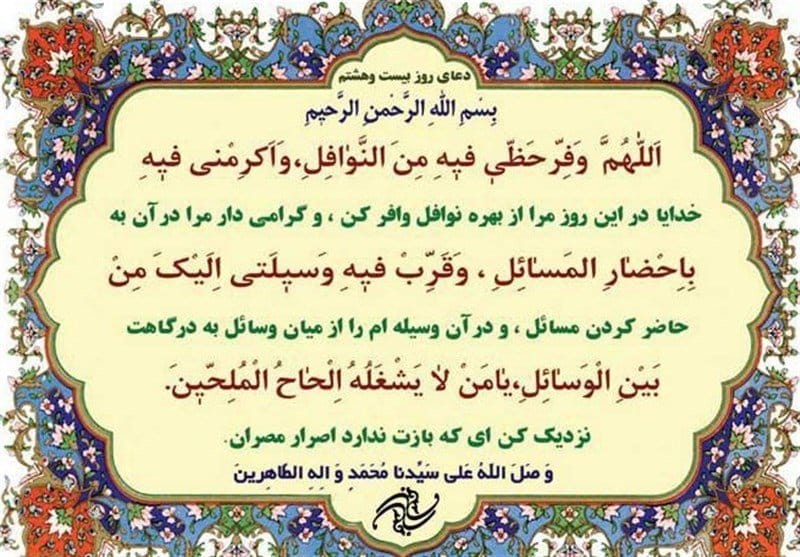 دعای روز بیست وهشتم
بِسْمِ اللهِ الرَّحْمنِ الرَّحیمِ
اَللّهُمَّ وَفِّرْ حَظّی فیهِ مِنَ النَّوافِلِ،وَاَکرِمْنی فیهِ
خدایا در این روز مرا از بهره نوافل وافر کن ، و گرامی دار مرا درآن به
بِاِحْضارِ المَسائِلِ ، وَقَرِّبْ فیهِ وَسیلَتی اِلَیْکَ مِنْ
حاضر کردن مسائل ، و درآن وسیله ام را از میان وسائل به درگاهت
بَیْنِ الْوَسائِلِ،یامَنْ لا یَشْغَلُهُ اِلْحاحُ الْمُلِحّینَ.
نزدیک کن ای که بازت ندارد اصرار مصران.
وَ صَلَ اللهُ عَلی سَیِّدنا مُحَمَدٍ وَ الِهِ الطّاهِرینَ